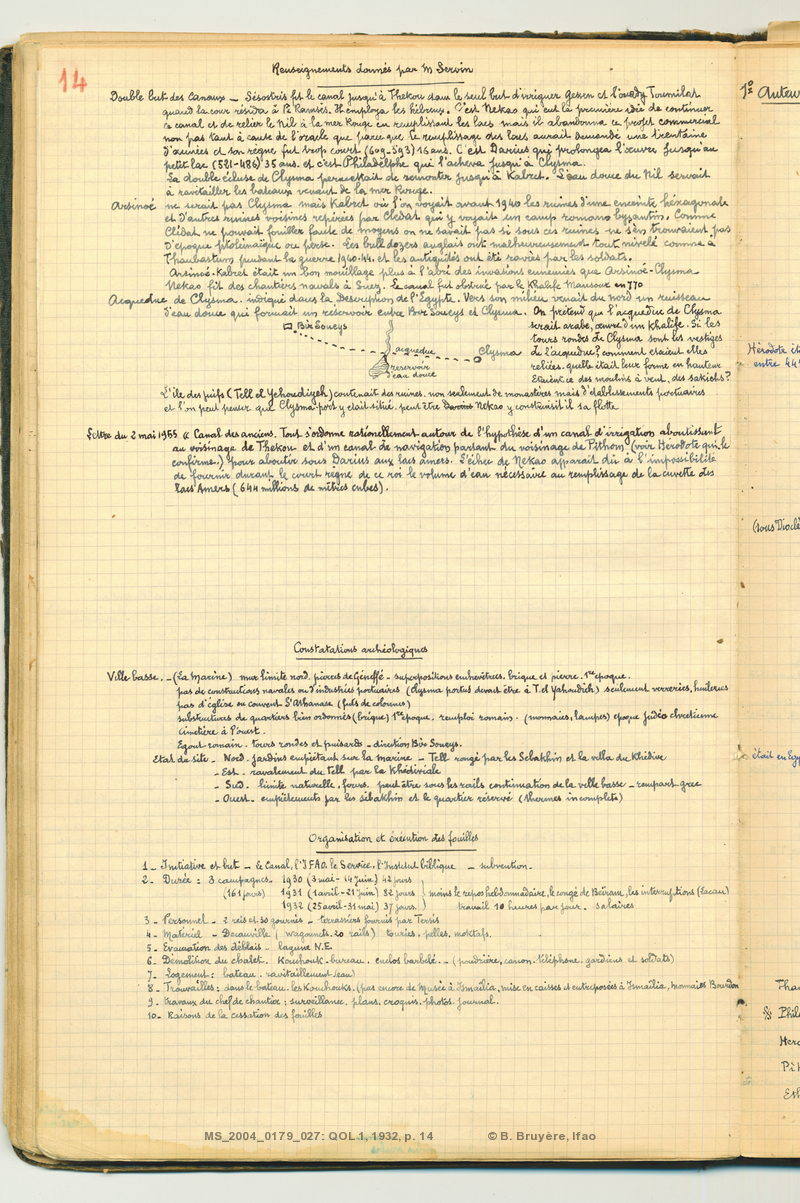 14
Renseignements donnés par M Servin
Double but des canaux _ Sésostris fit le canal jusqu'à Thekou dans le seul but d'irriguer Gesen et l'ouady Toumilat
quand la cour résida à Pi Ramsès. Il employa les hébreux. C'est Nekao qui eut la première idée de continuer
ce canal et de relier le Nil à la mer Rouge en remplissant les lacs mais il abandonna ce projet commercial
non pas tant à cause de l'oracle que parce que le remplissage des lacs aurait demandé une trentaine
d'années et son règne fut trop court (609-593) 16 ans. C'est Darius qui prolongea l'œuvre jusqu'au
petit lac (521-486) 35 ans. et c'est Philadelphe qui l'acheva jusqu'à Clysma.
La double écluse de Clysma permettait de remonter jusqu'à Kabret. L'eau douce du Nil servait
à ravitailler les bateaux venant de la mer Rouge.
Arsinoé ne serait pas Clysma mais Kabret où l'on voyait avant 1940 les ruines d'une enceinte héxagonale
et d'autres ruines voisines repérées par Clédat qui y voyait un camp romano byzantin. Comme
Clédat ne pouvait fouiller faute de moyens on ne savait pas si sous ces ruines ne s'en trouvaient pas
d'époque ptolémaïque ou perse. Les bull dozers anglais ont malheureusement tout nivelé comme à
Thaubastum pendant la guerre 1940-44. et les antiquités ont été ravies par les soldats.
Arsinoé-Kabret était un bon mouillage plus à l'abri des invasions ennemies que Arsinoé-Clysma
Nekao fit des chantiers navals à Suez. Le canal fut obstrué par le Khalife Mansour en 770
Acqueduc de Clysma. indiqué dans la Description de l'Egypte. Vers son milieu venait du nord un ruisseau
d'eau douce qui formait un réservoir entre Bir Soueys et Clysma. On prétend que l'acqueduc de Clysma
serait arabe, œuvre d'un Khalife. Si les
tours rondes de Clysma sont les vestiges
de l'acqueduc? comment étaient elles
reliées, quelle était leur forme en hauteur
étaient ce des moulins à vent, des sakiehs?
Bir Soueys
acqueduc
Clysma
réservoir
d'eau douce
L'île des juifs (Tell el Yehoudiyeh) contenait des ruines. non seulement de monastères mais d'établissements portuaires
et l'on peut penser que Clysma-port y était situé. peut être Nekao y construisit il sa flotte
Lettre du 2 mai 1955 « Canal des anciens. Tout s'ordonne rationellement autour de l'hypothèse d'un canal d'irrigation aboutissant
au voisinage de Thekou et d'un canal de navigation partant du voisinage de Pithom (voir Hérodote qui le
confirme.) pour aboutir sous Darius aux lacs amers. L'échec de Nekao apparait dû à l'impossibilité
de fournir durant le court règne de ce roi le volume d'eau nécessaire au remplissage de la cuvette des
lacs Amers (644 millions de mètres cubes).
Constatations archéologiques
Ville basse. _ (La Marine) mur limite nord. pierres de Géneffé - superpositions enchevêtrées, brique et pierre. 1ère époque.
pas de constructions navales ou d'industries portuaires (Clysma portus devait être à T. el Yahoudieh) seulement verreries, huileries
pas d'église ou couvent St Athanase (fûts de colonnes)
substructures de quartiers bien ordonnés (brique) 1ère époque. remploi romain. (monnaies, lampes) époque judéo chrétienne
cimetière à l'ouest.
Egout romain. tours rondes et puisards - direction Bir Soueys.
Etat du site - Nord. jardins empiétant sur la marine - Tell rongé par les Sébakhin et la villa du Khédive
- Est. ravalement du Tell par la Khédiviale
- Sud. limite naturelle. fours. peut être sous les rails continuation de la ville basse - rempart grec
- Ouest. empiètements par les sébakhin et le quartier réservé (thermes incomplets)
Organisation et exécution des fouilles
1 _ Initiative et but - le Canal, l'IFAO, le Service, l'Institut biblique - subvention.
2 _ Durée : 3 campagnes. 1930 (3 mai - 14 juin) 42 jours
(161 jours) 1931 (1 avril - 21 juin) 82 jours } moins le repos hebdomadaire, le congé de Beiram, les interruptions (Lacau)
1932 (25 avril - 31 mai) 37 jours. travail 10 heures par jour - salaires
3 _ Personnel - 2 reis et 30 gournis - terrassiers fournis par Tersis
4 _ Matériel - Decauville (wagonnets. 20 rails) touries, pelles, moktafs.
5 _ Evacuation des déblais - lagune N.E.
6 _ Démolition du chalet. Kouchouk-bureau. enclos barbelé - (poudrière, canon. téléphone, gardiens et soldats)
7 _ Logement : bateau. ravitaillement (eau)
8 _ Trouvailles : dans le bateau. les Kouchouks. (pas encore de Musée à Ismaïlia, mise en caisses et entreposées à Ismaïlia, monnaies Bourdon
9 _ travaux du chef de chantier : surveillance. plans. croquis. photos. journal.
10 _ Raisons de la cessation des fouilles
1º Auteur
Hérodote
entre 44
(sous Dioclé
était en Egy
Phil
Hero
MS_2004_0179_027: QOL 1, 1932, p. 14 © B. Bruyère, Ifao